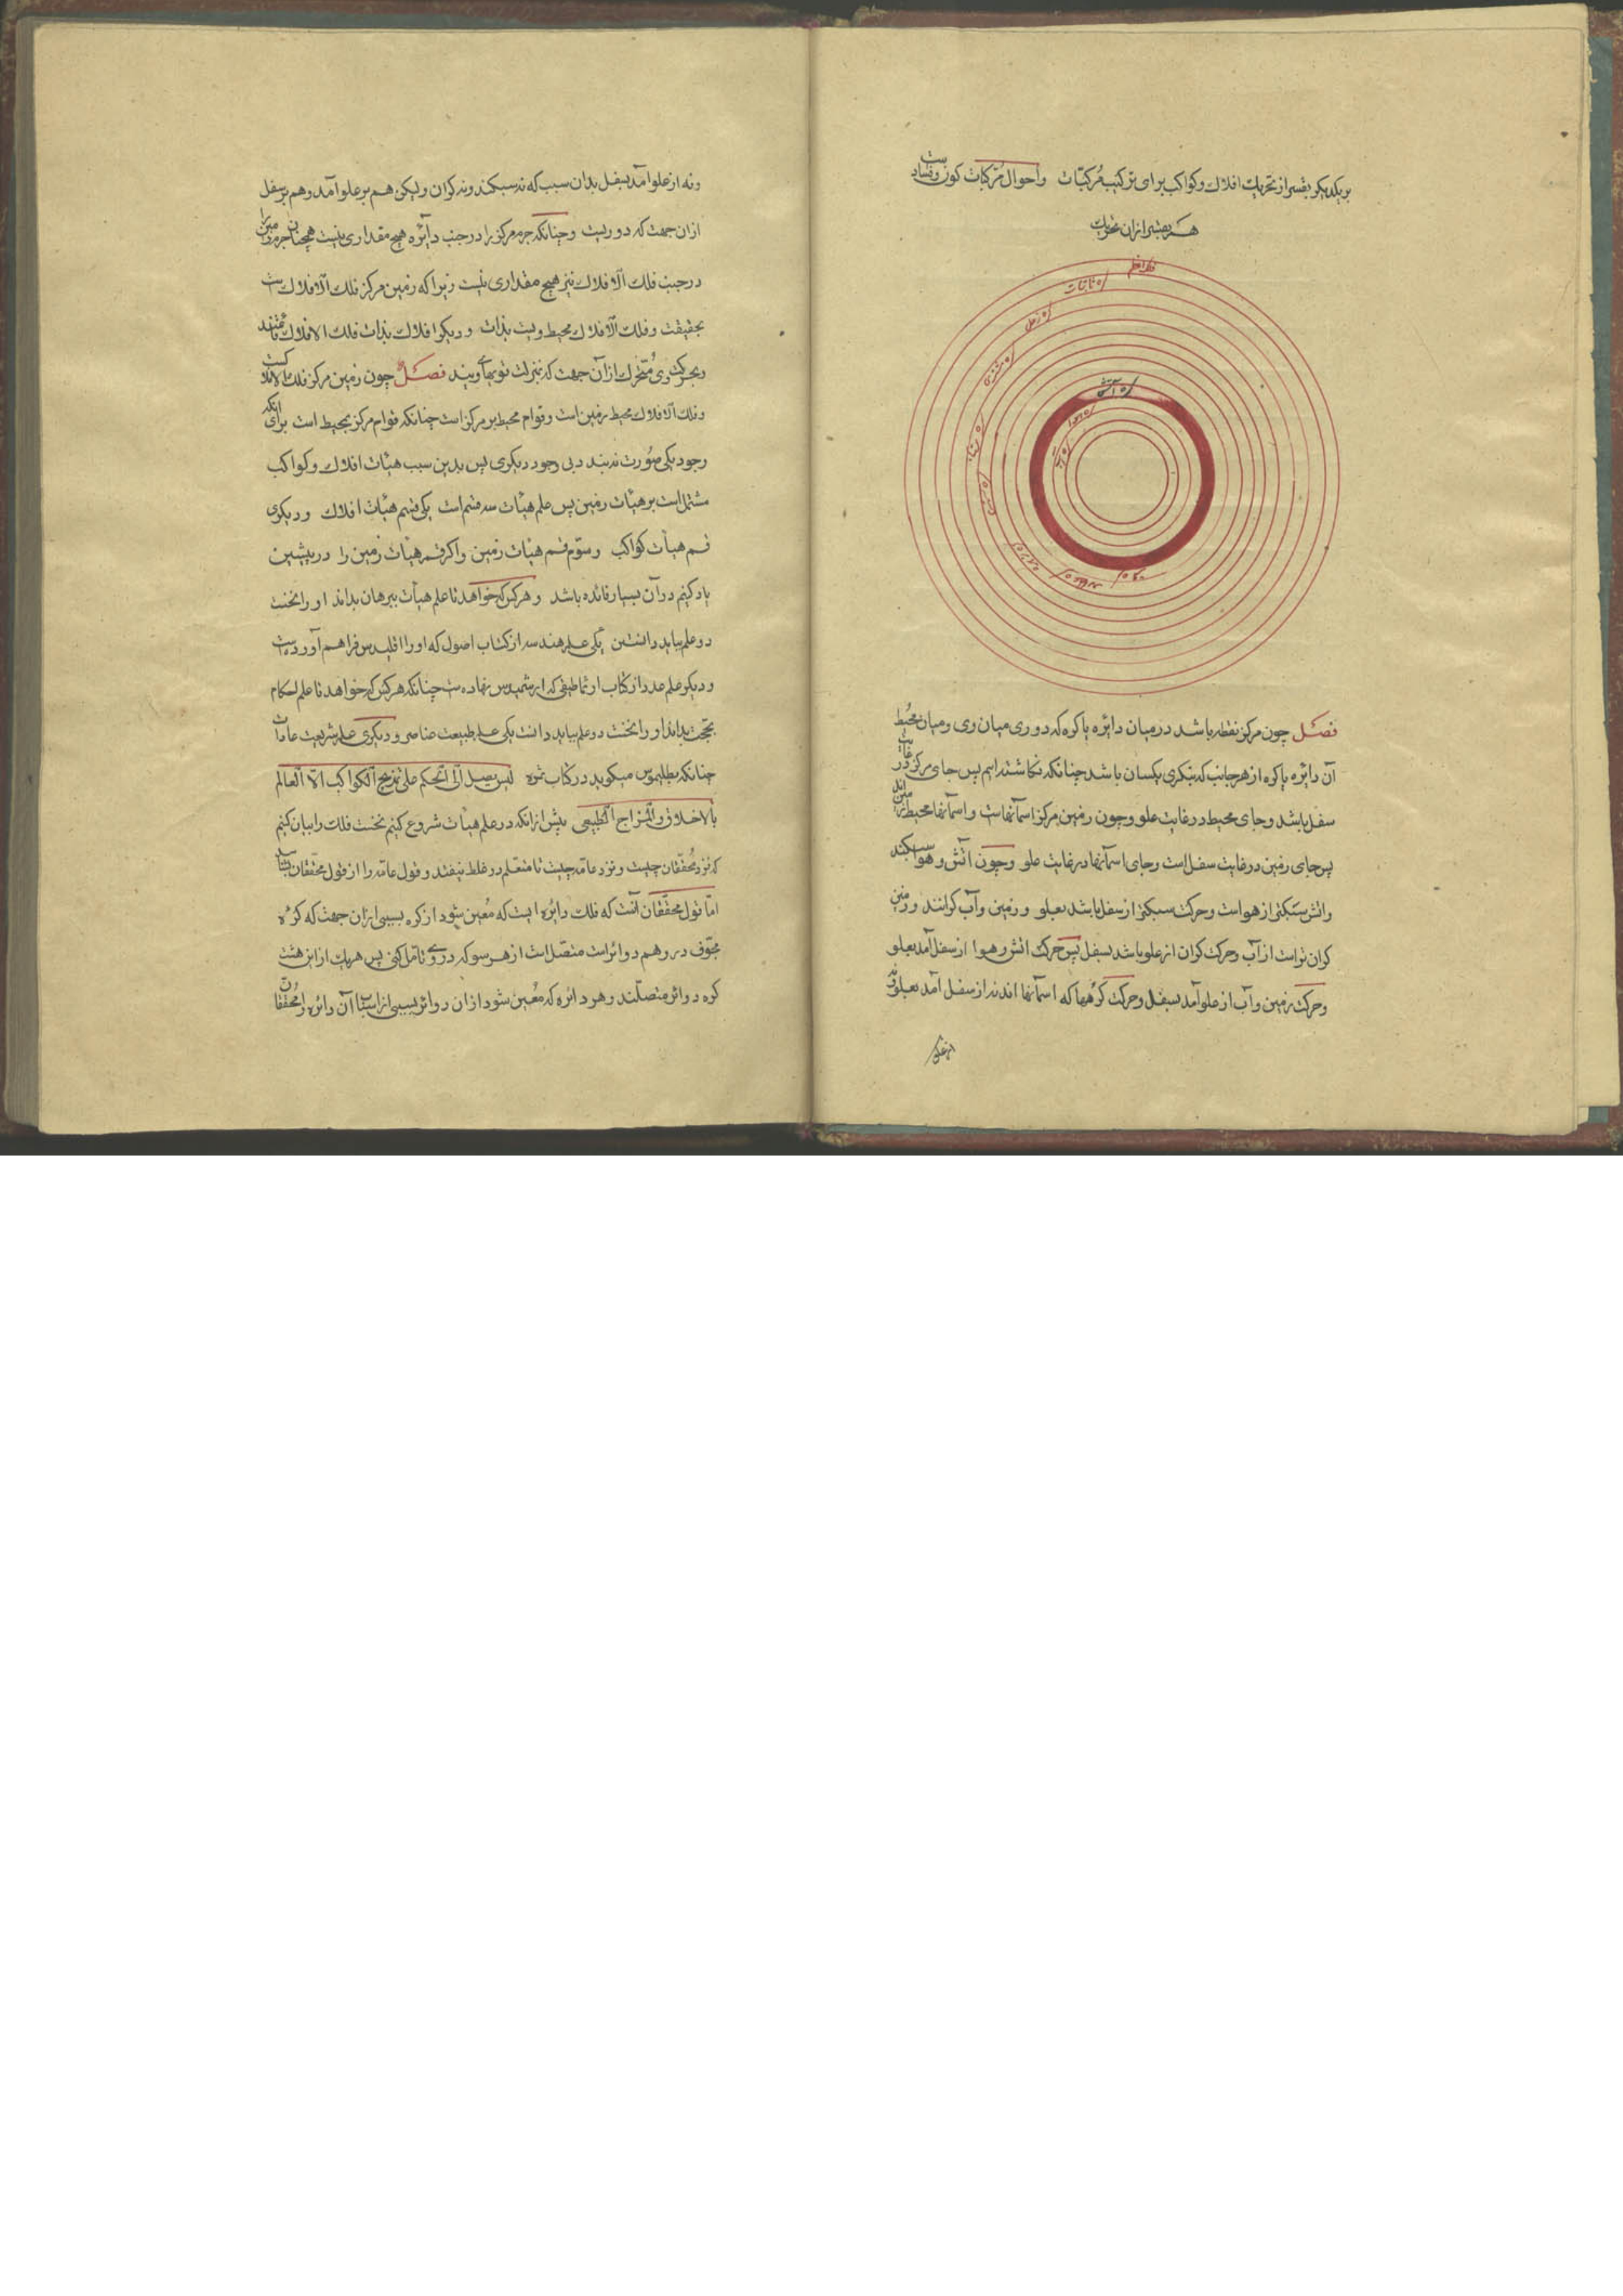 بر یکدیگر بقسر از تحریک افلاک و کواکب برای ترکیب مرکبات و احوال مرکبات کون و فسادست
هر بعضی ازان
فلک اعظم
کره ثابتات
کره زحل
کره مشتری
کره مریخ
کره شمس
کره زهره
کره عطارد
کره قمر
کره آتش
کره هوا
کره آب
فصل چون مرکز نقطه باشد در میان دایره یا کره که دوری میان وی و میان محیط
آن دایره یا کره از هر جانب که بنگری یکسان باشد چنانکه نگاشته‌ایم پس جای مرکز در غایت
سفل باشد و جای محیط در غایت علو و چون زمین مرکز اسمانهاست و اسمانها محیط زمین‌اند
پس جای زمین در غایت سفل است و جای اسمانها در غایت علو و چون اتش و هوا سبکند
و اتش سبکتر از هواست و حرکت سبکتر از سفل باشد بعلو و زمین و آب کرانند و زمین
کران‌تر است از آب و حرکت کران از علو باشد بسفل پس حرکت اتش و هوا از سفل آمد بعلو
و حرکت زمین و آب از علو آمد بسفل و حرکت کرهها که اسمانها اند نه از سفل آمد بعلو و نه
از علو
و نه از علو آمد بسفل بدان سبب که نه سبکند و نه کران ولیکن هم بر علو آمد و هم بر سفل
ازان جهت که دوریست و چنانکه جرم مرکز را در جنب دائره هیچ مقداری نیست همچنان جرم زمین را
در جنب فلک الافلاک نیز هیچ مقداری نیست زیرا که زمین مرکز فلک الافلاک است
بحقیقت و فلک الافلاک محیط ویست بذات و دیکر افلاک بذات فلک الافلاک قائمند
و بحرکت وی متحرک ازان جهت که بمنزلت توبهای ویند فصل چون زمین مرکز فلک الافلاکست
و فلک الافلاک محیط زمین است و قوام محیط بر مرکز است چنانکه قوام مرکز بمحیط است برای انکه
وجود یکی صورت نه بندد بی وجود دیکری پس بدین سبب هیأت افلاک و کواکب
مشتمل است بر هیأت زمین پس علم هیأت سه قسم است یکی قسم هیأت افلاک و دیکری
قسم هیأت کواکب و سوم قسم هیأت زمین و اکر قسم هیأت زمین را در پیشین
یاد کنیم در آن بسیار فائده باشد و هر کس که خواهد تا علم هیأت ببرهان بداند او را نخست
دو علم بباید دانستن یکی علم هندسه از کتاب اصول که او را اقلیدس فراهم آورده است
و دیکر علم عدد از کتاب ارثماطیقی که نهاده ست چنانکه هر کس که خواهد تا علم احکام
بداند او را نخست دو علم بباید دانست یکی علم طبیعت عناصر و دیکری علم شریعت عادات
چنانکه بطلیموس میکوید در کتاب ثمره لیس یصل الی الحکم علی تمزیج الکواکب الا العالم
بالاخلاق و المزاج الطبیعی پیش ازانکه در علم هیأت شروع کنیم نخست فلک را بیان کنیم
که نزد محققان چیست و نزد عامه چیست تا متعلم در غلط نیفتد و قول عامه را از قول محققان بشناسد
اما قول محققان آنست که فلک دائره ایست که معین شود از کره بسببی ازان جهت که کره
مجوف در وهم دوائر است متصل است از هر سو که در وی تامل کنی پس هر یک از این هشت
کره دوائر متصلند و هر دائره که معین شود ازان دوائر بسببی از اسباب آن دائره را محققان